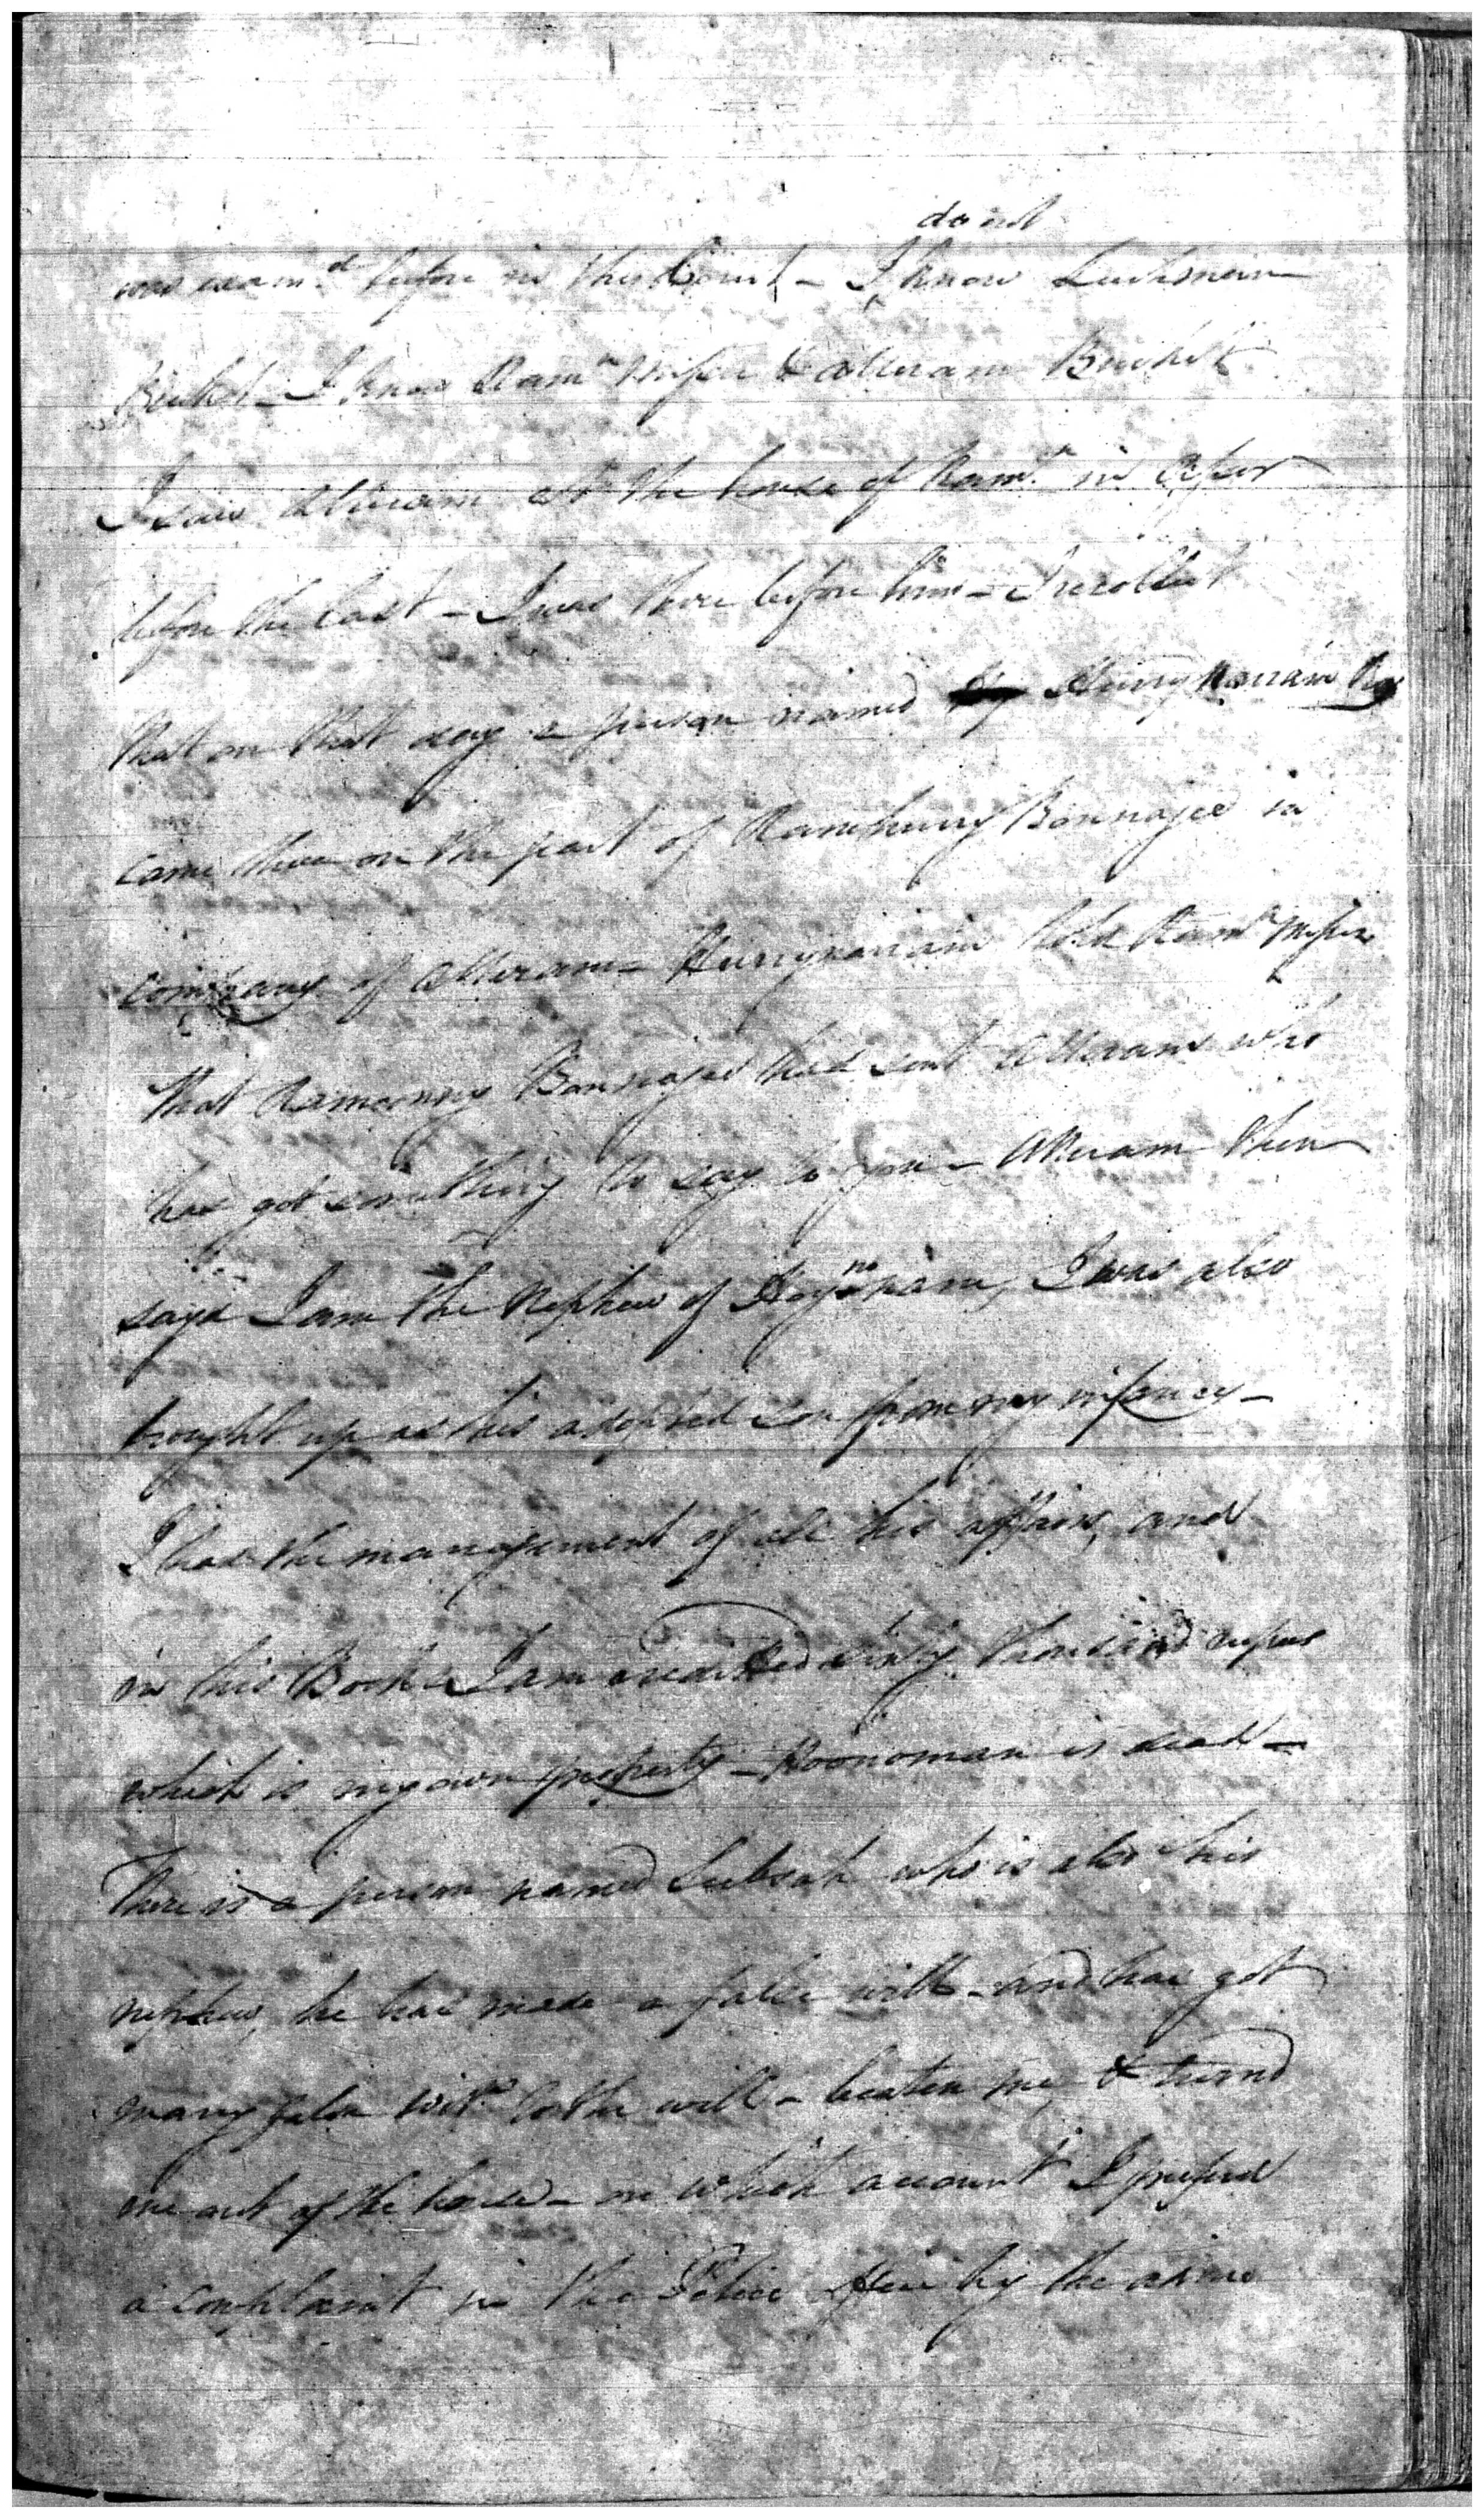 do not
was exam.d before in this Court - I know Luchman
I know Ram.n Misser & Atteram
I saw Atteram at the house of Ram.n in
before the last - I was there before him - I recollect
that on that day a person named Hurrynarrain Roy
came there on the part of Ramhurry Bonnajee in
company of Atteram - Hurrynarrain told Ram.n Misser
that Bonnajee had sent Atteram who
has got something to say to you - Atteram then
says I am the Nephew of I was also
brought up as his adopted son from my infancy -
I had the management of all his affairs, and
in his Books I am credited sixty thousand rupees
which is my own property - Hoonoman is dead -
There is a person named Subsah who is also his
nephew, he has made a false will - and has got
many false wit.s to the will - beaten me & turnd
me out of the house - on which account I preferd
a complaint in the Police Office by the